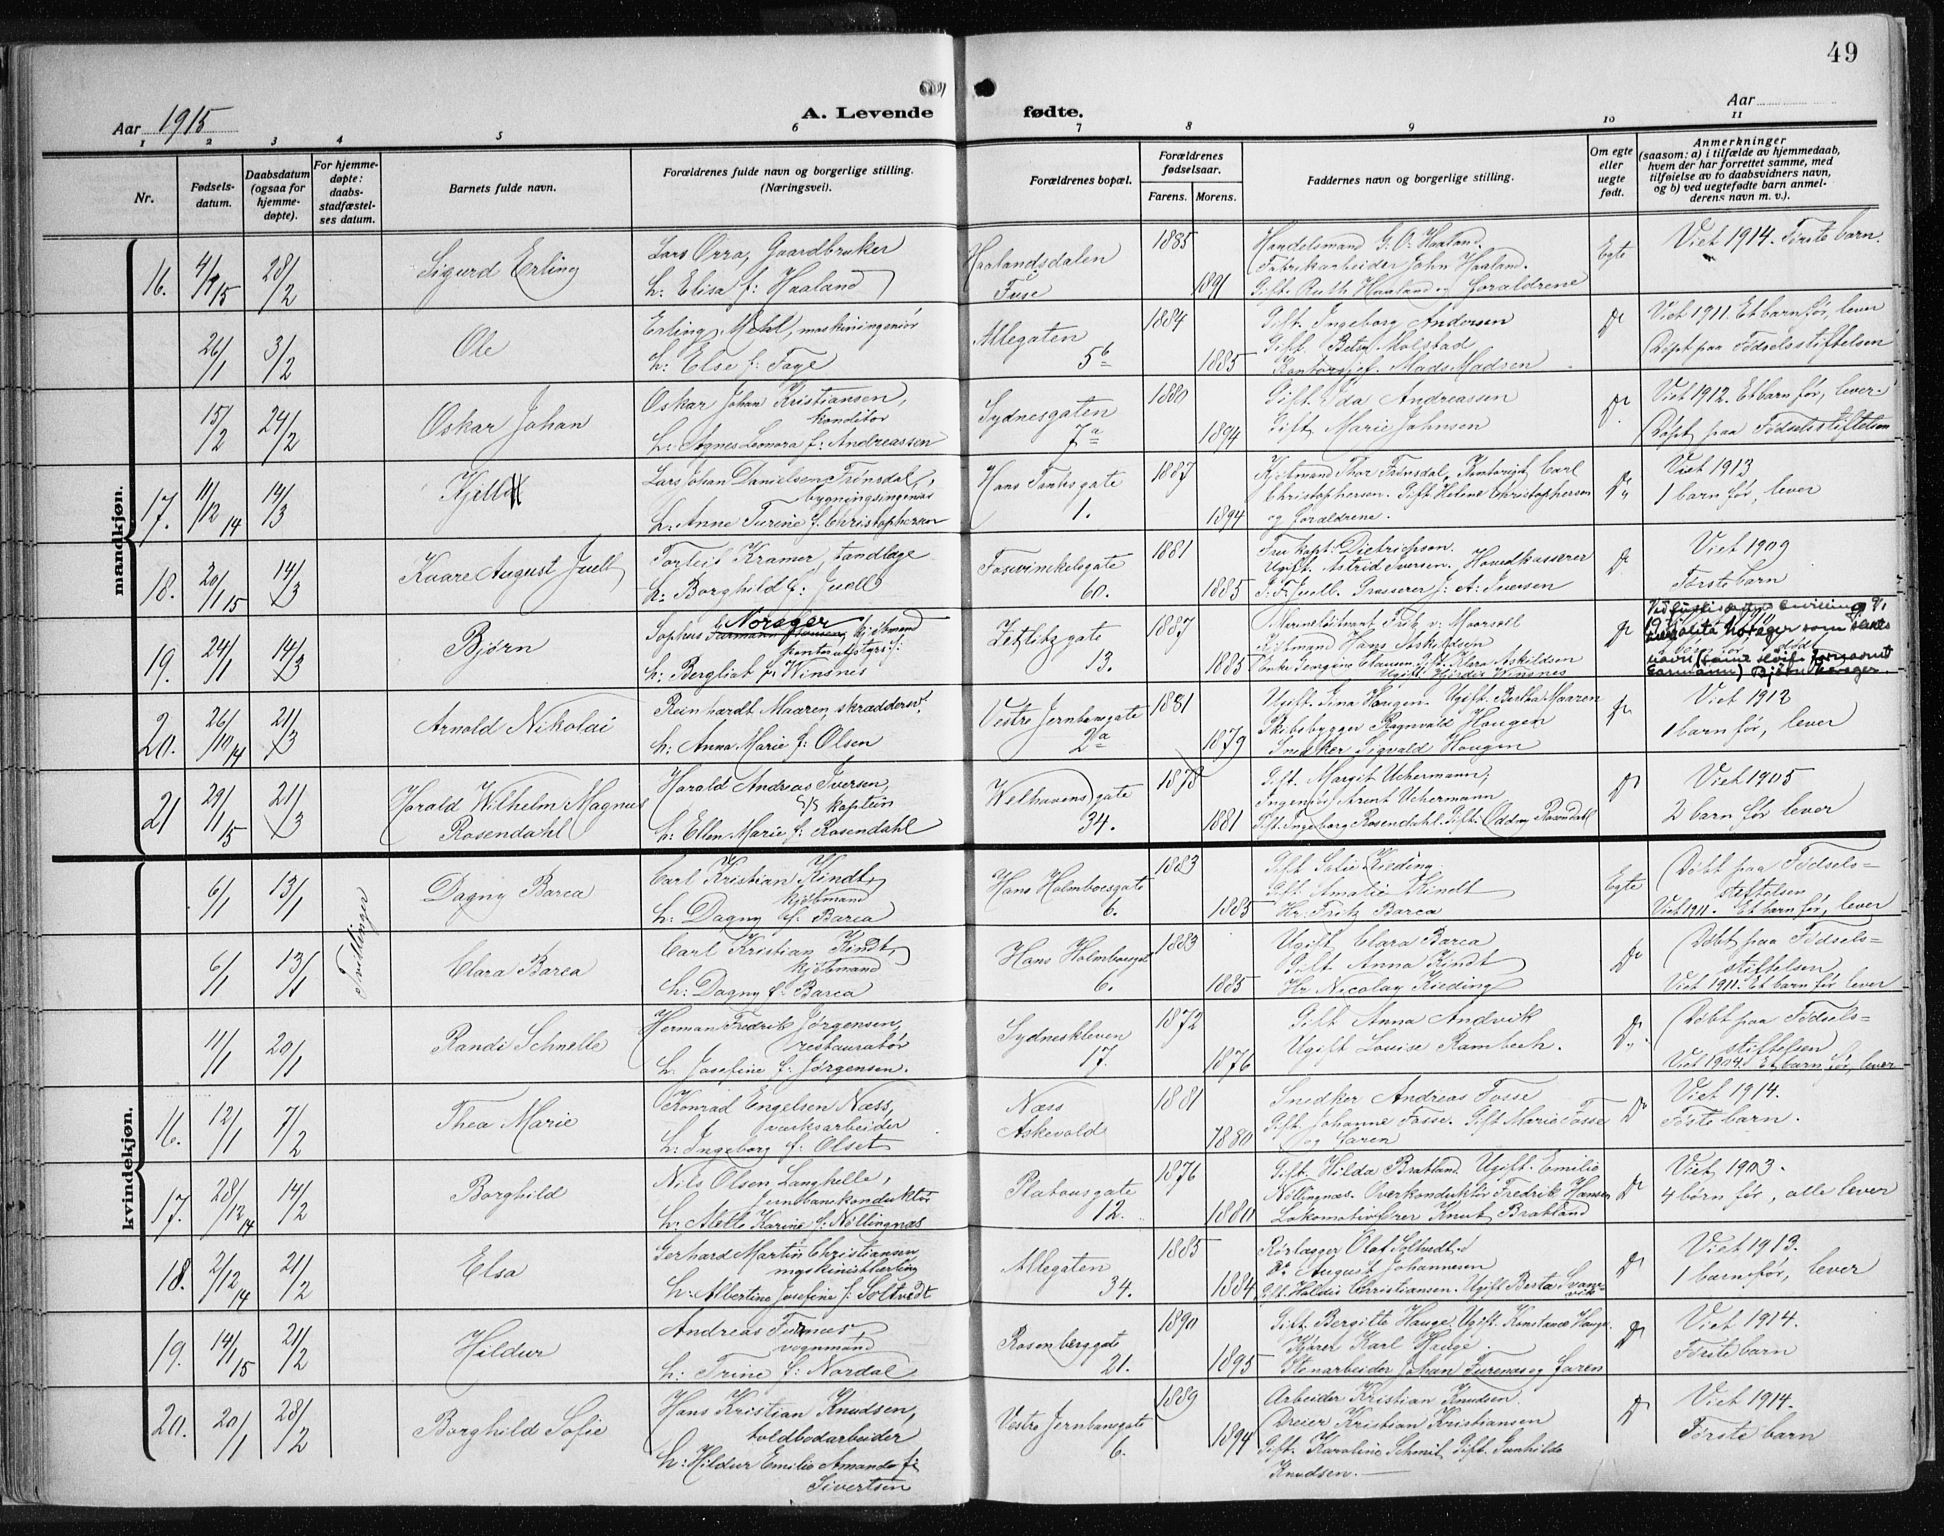 49
Aar 1915
A. Levende fødte.
Aar
1 2 3 4 5 6 7 8 9 10 11
Nr.
Fødselsdatum.
Daabsdatum (ogsaa for hjemmedøpte).
For hjemmedøpte: daabsstadfæstelses datum.
Barnets fulde navn.
Forældrenes fulde navn og borgerlige stilling. (Næringsvei).
Forældrenes bopæl.
Forældrenes fødselsaar.
Farens. Morens.
Faddernes navn og borgerlige stilling.
Om egte eller uegte født.
Anmerkninger
(saasom: a) i tilfælde av hjemmedaab, hvem der har forrettet samme, med tilføielse av to daabsvidners navn, og b) ved uegtefødte barn anmelderens navn m. v.).
mandkjøn.
16. 28/2 Sigurd Erling
Lars Orra, Gaardbruker
h: Elisa f: Haaland
Haalandsdalen
Fuse
1885 1891
Handelsmand G. O. Haaland.
Fabrikarbeider John Haaland.
Gift. Ruth Haaland og forældrene
Egte
Viet 1914. Første barn.
26/1 3/2 Ole
Erling Mehl, maskiningeniør
h: Else f: Fage
Allegaten
5b
1884 1885
Gift. Ingeborg Andersen
Gift. Betsy Molstad
Kontorsjef. Mads Madsen
Do
Viet 1911. Et barn før, lever
Døpt paa Fødselsstiftelsen
15/2 24/2 Oskar Johan
Oskar Johan Kristiansen,
konditor
h: Agnes Leonora f: Andreassen
Sydnesgaten
7a
1880 1894
Gift Ida Andreassen
Gift Marie Johnsen
Do
Viet 1912. Et barn før, lever.
Døpt paa Fødselsstiftelsen
17. 11/12 14 14/3 Kjell
Lars Johan Danielsen Trønsdal,
bygningsingeniør
h: Anne Turine f: Christophersen
Hans Tanksgate
1.
1887 1894
Christophersen. Gift Helene Christophersen
og forældrene.
Do
Viet 1913
1 barn før, lever
18. 20/1 15 14/3 Kaare August Juell
Torleis Kramer, tandlæge
h: Borghild f: Juell
Fosvinckelsgate
60.
1881 1885
Fru kapt: Dietrichson.
Ugift. Astrid Iversen. Hovedkasserer
Do
Viet 1909
Første barn
19. 24/1 14/3 Bjørn
Noreger
Sophus kjøbmand
h: Bergliot f: Winsnes
Zetlitzgate
13.
1887 1885
Kjøbmand Hans Askildsen
Enke Georgine Clausen, gift. Klara Askildsen
Ugift: Hjørdis Winsnes
Do
20. 26/10 14 21/3 Arnold Nikolai
Reinhardt Maaren, skræddersv.
h: Anna Marie f: Olsen
Vestre Jernbanegate
2a
1881 1879
Ugift. Gina Haugen. Ugift. Bertha Maaren
Skibsbygger Ragnvald Haugen
Snedker Sigvald Haugen
Do
Viet 1912
1 barn før, lever
21 29/1 15 21/3 Harald Wilhelm Magnus
Rosendahl
Harald Andreas Iversen,
s/s kaptein
h: Ellen Marie f: Rosendahl
Welhavensgate
34.
1878 1881
Gift. Margit Uchermann,
Ingeniør Arent Uchermann
Gift. Ingeborg Rosendahl. Gift. Oddny Rosendahl
Do
Viet 1905
2 barn før lever
kvindekjøn.
Tvillinger
6/1 13/1 Dagny Barca
Carl Kristian Kindt,
kjøbmand
h: Dagny f: Barca
Hans Holmboesgate
6.
1883 1885
Gift Sofie Kieding
Gift Amalie Kindt
Hr. Fritz Barca
Egte
Døbt paa Fødsels=
stiftelsen
Viet 1911. Et barn før, lever
6/1 13/1 Clara Barca
Carl Kristian Kindt,
kjøbmand
h: Dagny f: Barca
Hans Holmboesgt
6.
1883 1885
Ugift Clara Barca
Gift Anna Kindt
Hr. Nicolay Kieding
Do
Døbt paa Fødsels=
stiftelsen
Viet 1911. Et barn før lever
11/1 20/1 Randi Schnelle
Herman Fredrik Jørgensen,
restauratør
h: Josefine f: Jørgensen.
Sydneskleven
17.
1872 1876
Gift Anna Andvik
Ugift Louise Rambech.
Do
Døbt paa Fødsels=
stiftelsen
Viet 1904. Et barn før, lever
16. 12/1 7/2 Thea Marie
Konrad Engelsen Næss,
værksarbeider
h: Ingeborg f: Olset
Næss
Askevold
1881 1880
Snedker Andreas Fosse
Gift Johanne Fosse. Gift Maria Fosse
og faren
Do
Viet 1914.
Første barn.
17. 28/12 14 14/2 Borghild
Nils Olsen Langhelle,
jernbanekonduktør
h: Mette Karine f: Nøttingnæs
Platousgate
12.
1876 1880
Gift. Hilda Bratland. Ugift. Emilie
Nøttingnæs. Overkonduktør Fredrik Hansen
Lokomotivfører Knut Bratland
Do
Viet 1903.
4 børn før, alle lever
18. 2/12 14 21/2 Elsa
Gerhard Martin Christiansen
maskinistlærling
h: Albertine Josefine f: Soltvedt
Allegaten
34.
1885 1884
Rørlægger Olaf Soltvedt
Do August Johannesen
Gift. Haldis Christiansen. Ugift Berta Svanevik
Do
Viet 1913.
1 barn før, lever
19. 14/1 15 21/2 Hildur
Andreas Furenæs
vognmand
h: Trine f: Nordal
Rosenberggate
21.
1890 1895
Gift. Bergitte Hauge. Ugift. Konstance Hauge.
Kjører Karl Hauge
Stenarbeider Johan Furenæs og faren
Do
Viet 1914.
Første barn
20. 20/1 28/2 Borghild Sofie
Hans Kristian Knudsen,
toldbodarbeider
h: Hildur Emilie Amanda f:
Sivertsen
Vestre Jernbanegate
6.
1889 1894
Arbeider Kristian Knudsen.
Dreier Kristian Kristiansen
Gift. Karoline Schmit. Gift. Gunhilde
Knudsen.
Do
Viet 1914.
Første barn